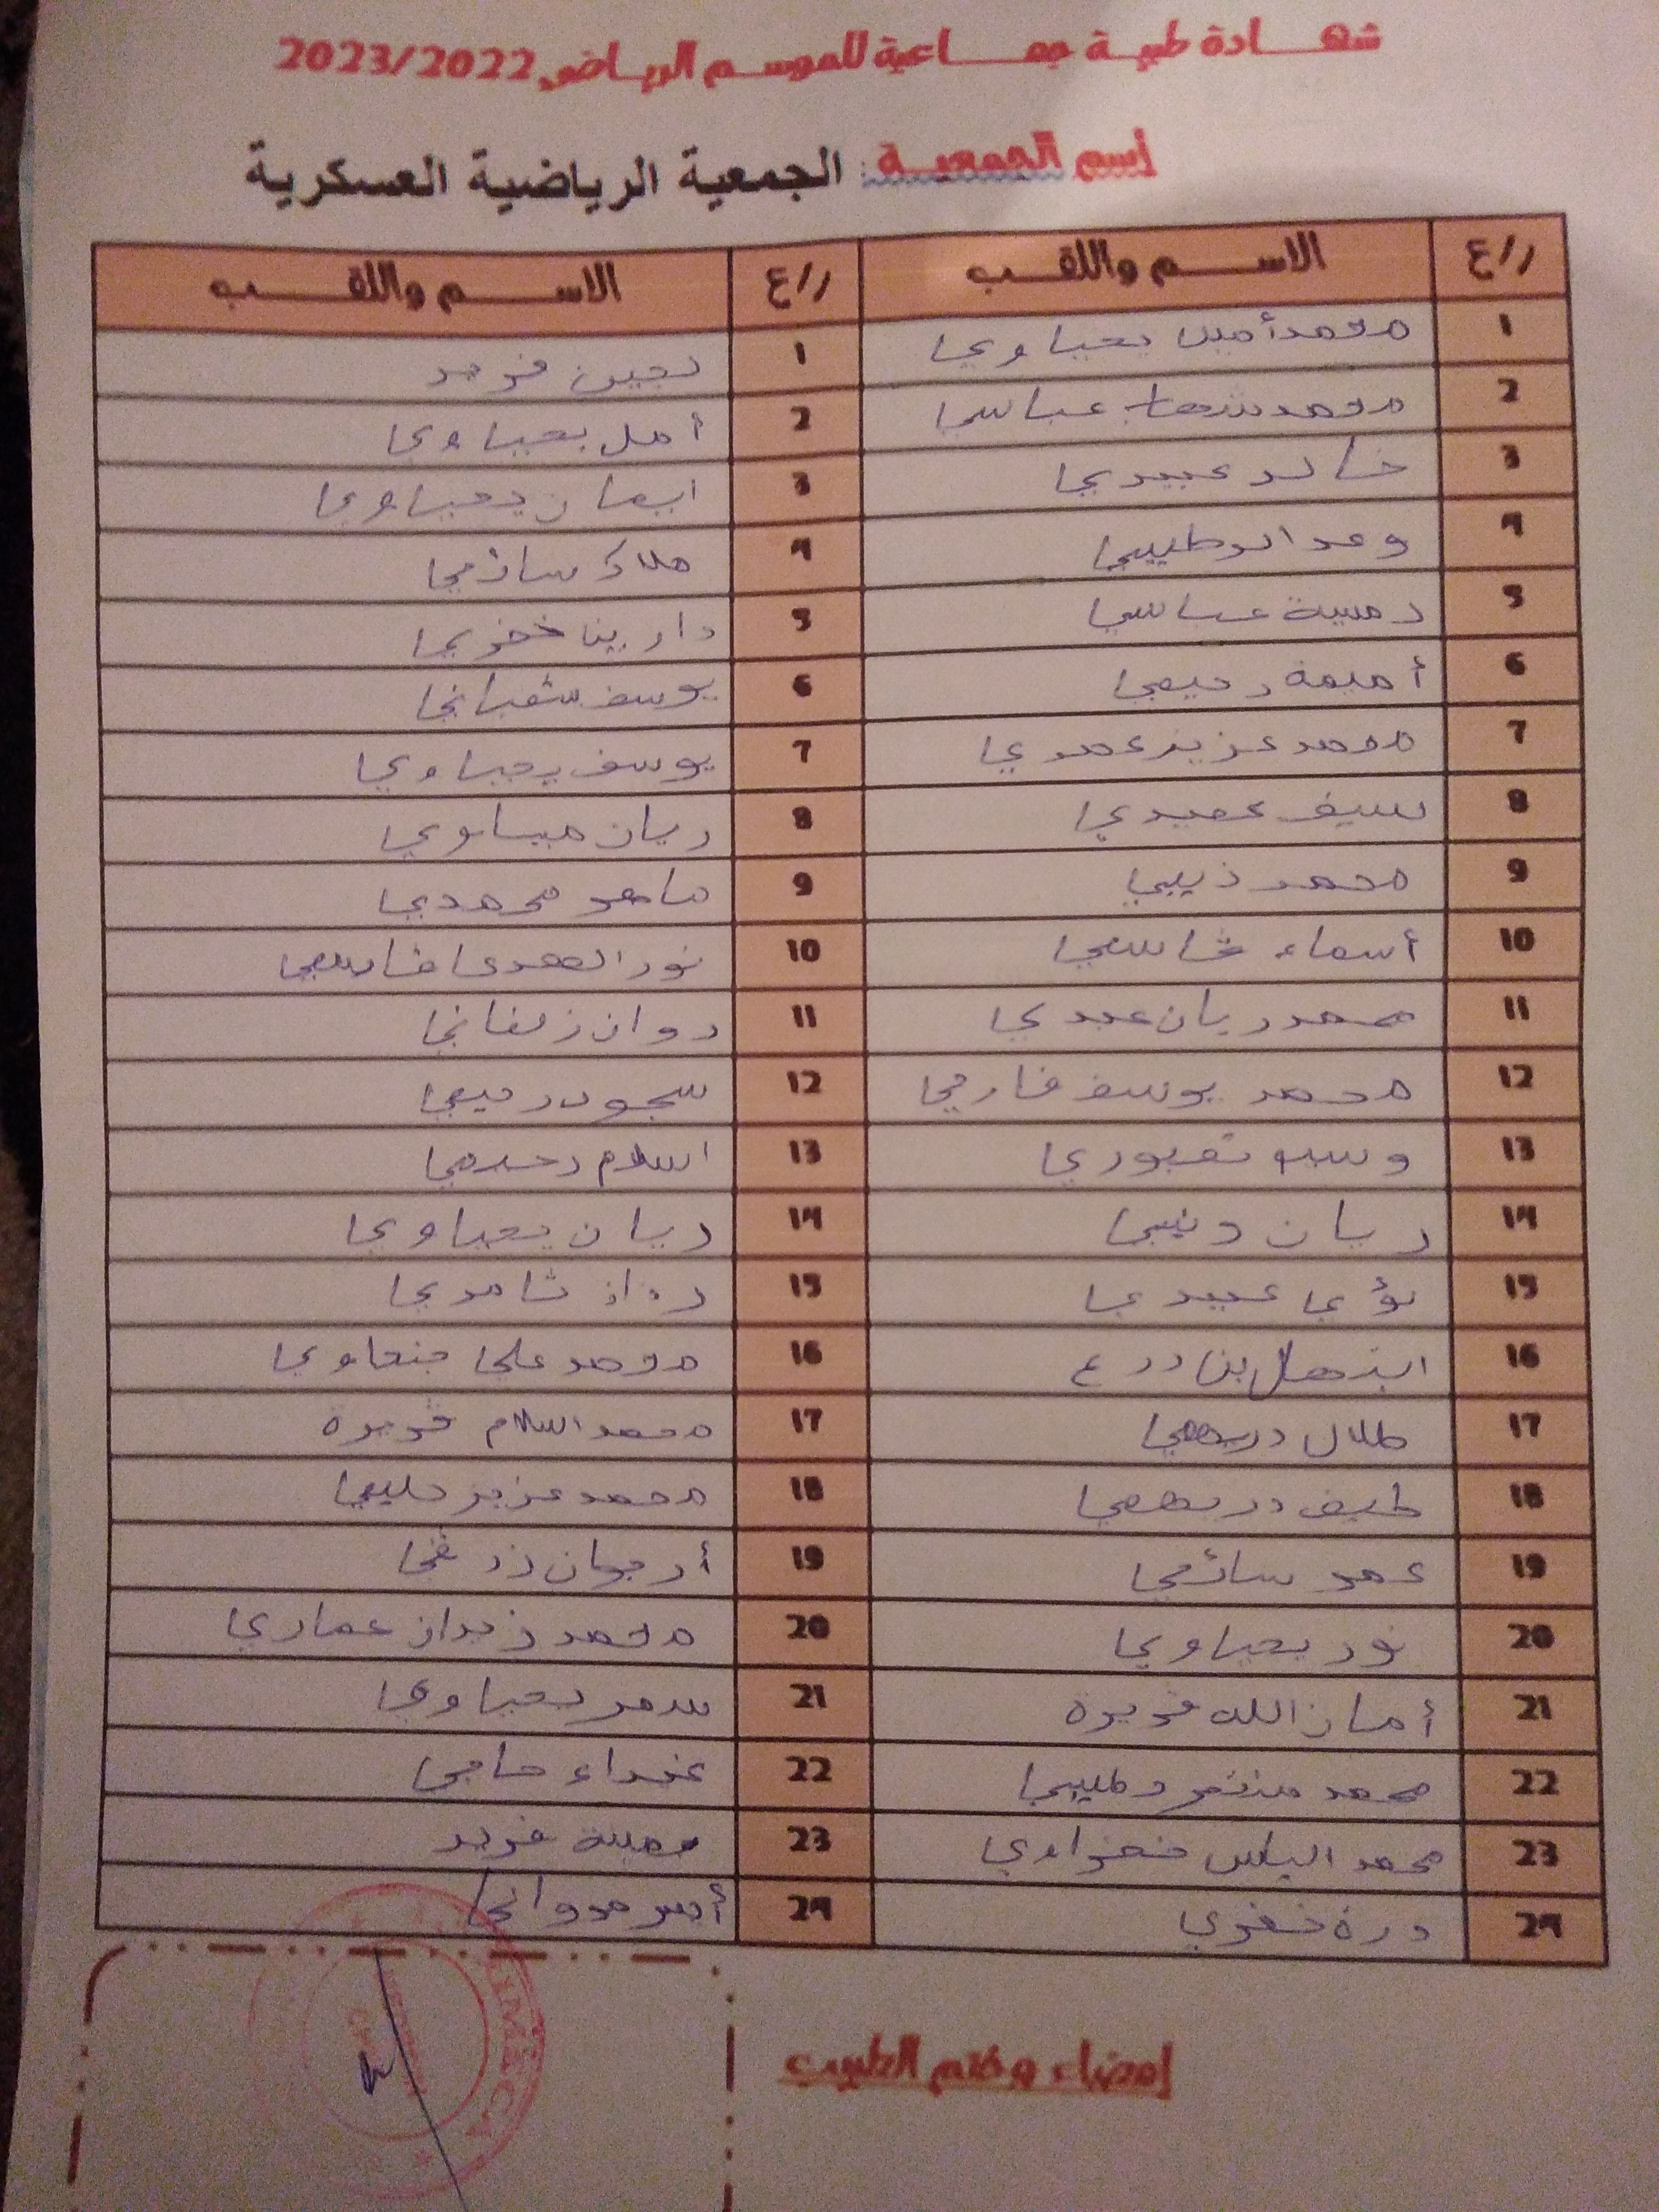 شهادة طبية جماعية للموسم الرياضي 2023/2022
إسم الجمعية: الجمعية الرياضية العسكرية
ر/ع الاسم واللقب ر/ع الاسم واللقب
1 محمد أمين يحياوي 1 لجين فريد
2 محمد شهاب عباسي 2 أمل يحياوي
3 خالد عبيدي 3 ايمان يحياوي
4 وعد الدطليبي 4 ملاك سائمي
5 دمية عباسي 5 دارينا خضري
6 أميمة رحيمي 6 يوسف شعباني
7 محمد عزيز عمدي 7 يوسف يحياوي
8 سيف عميدي 8 ريان ميساوي
9 محمد ذيبي 9 ماهر محمدي
10 أسماء قاسمي 10 نور الهدى قاسمي
11 محمد ريان عبدي 11 روان زلفاني
12 محمد يوسف فارحي 12 سجود رحيمي
13 تعبوري 13 اسلام رحيمي
14 ريان دنيبي 14 ريان يحياوي
15 لؤي عبيدي 15 ثامري
16 ابتهال بن درع 16 محمد علي
17 طلال دريهمي 17 محمد اسلام قويرة
18 طيف دريهمي 18 محمد عزيز حليمي
19 عمر سائمي 19 أرجوان زرقي
20 نور يحياوي 20 محمد زيدان عماري
21 أمان الله قويرة 21 سمر يحياوي
22 محمد منتصر دطليبي 22 حاجي
23 محمد الياس نفزاوي 23 ميسة فريد
24 درة خضري 24 أمير مدواني
إمضاء وختم الطبيب